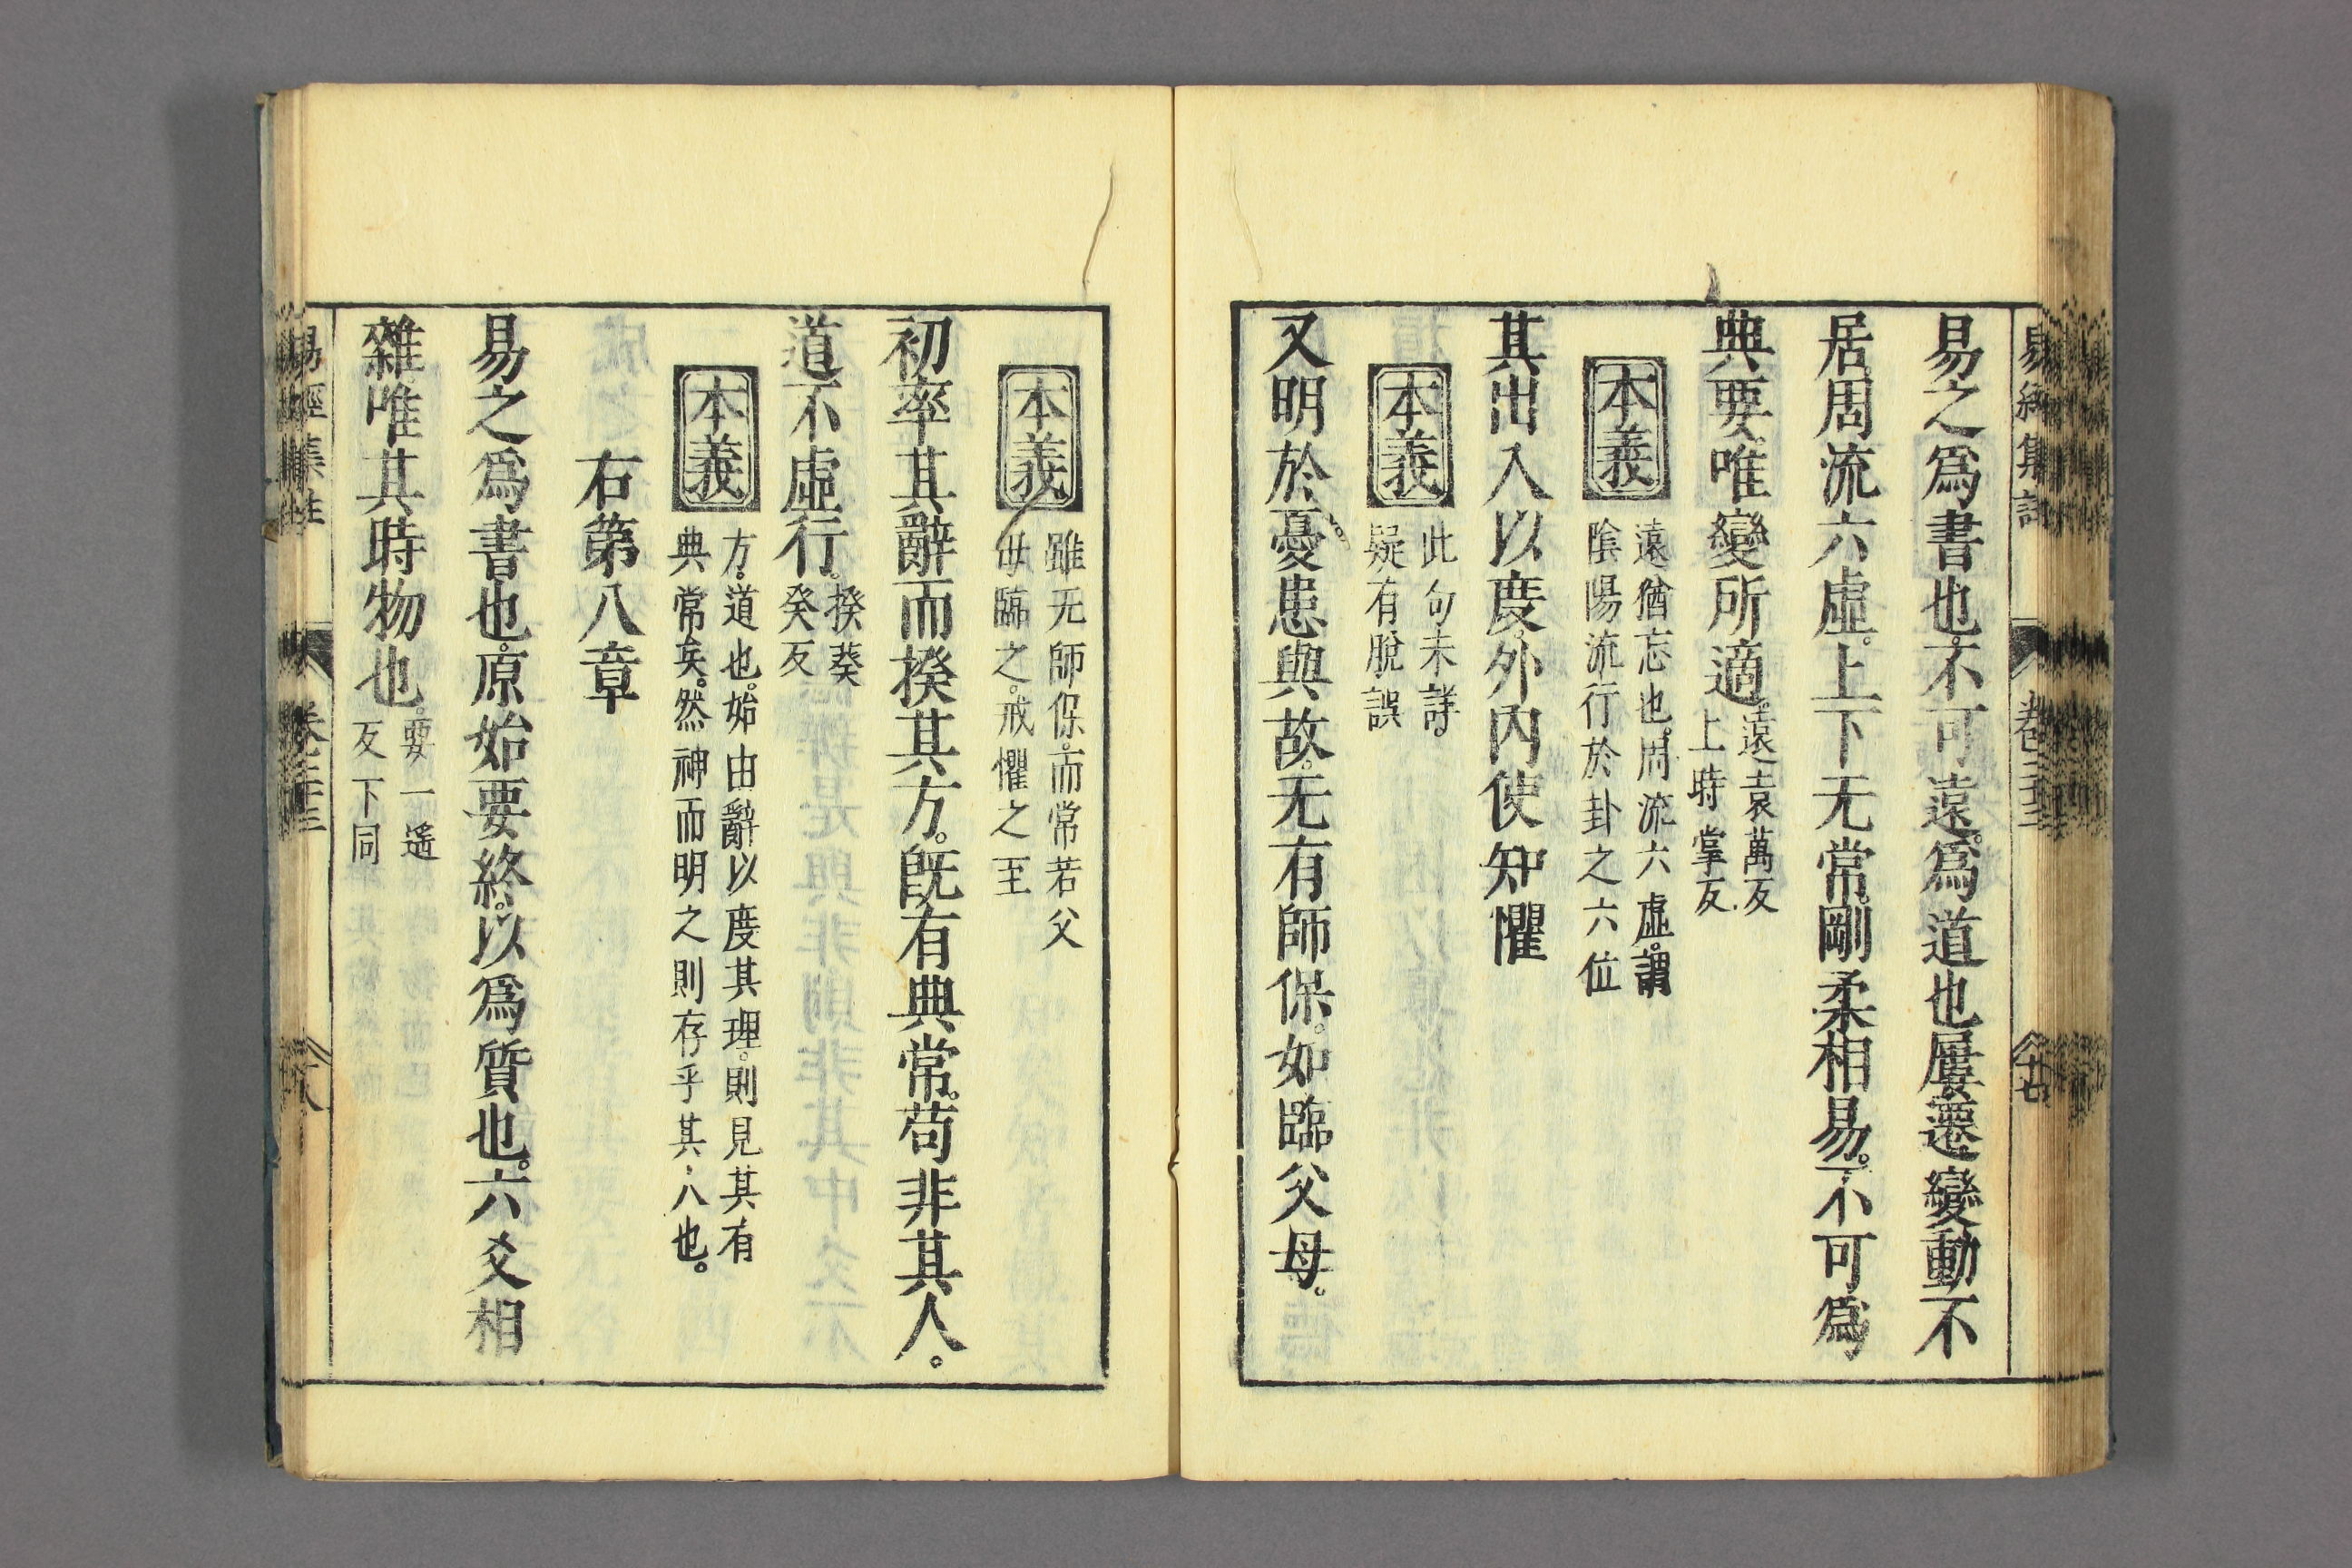 易之爲書也。不可遠。爲道也屢遷。變動不
居。周流六虛。上下无常。剛柔相易。不可爲
典要。唯變所適。遠袁萬反
上時掌反
本義
遠猶忘也。周流六虛。謂
陰陽流行於卦之六位
其出入以度。外內使知懼
本義
此句未詳。
疑有脫誤
又明於憂患與故。无有師保。如臨父母。
本義
雖无師保。而常若父
母臨之。戒懼之至
初率其辭而揆其方。旣有典常。苟非其人。
道不虛行。揆葵
癸反
本義
方。道也。始由辭以度其理。則見其有
典常矣。然神而明之則存乎其人也。
右第八章
易之爲書也。原始要終。以爲質也。六爻相
雜唯其時物也。要一遙
反下同
易經集註